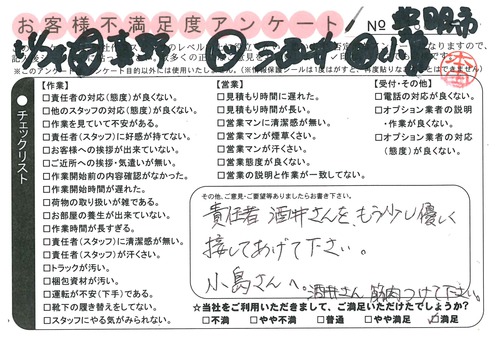 お客様不満足度アンケート No
【作業】
□責任者の対応(態度)が良くない。
□他のスタッフの対応(態度)が良くない。
□作業を見ていて不安がある。
□責任者(スタッフ)に好感が持てない。
□お客様への挨拶が出来ていない。
□ご近所への挨拶・気遣いが無い。
□作業開始前の内容確認がなかった。
□作業開始時間が遅れた。
□荷物の取り扱いが雑である。
□お部屋の養生が出来ていない。
□作業時間が長すぎる。
□責任者(スタッフ)に清潔感が無い。
□責任者(スタッフ)が汗くさい。
□トラックが汚い。
□梱包資材が汚い。
□運転が不安(下手)である。
□靴下の履き替えをしてない。
□スタッフにやる気がみられない。
【営業】
□見積もり時間に遅れた。
□見積もり時間が長い。
□営業マンに清潔感が無い。
□営業マンが煙草くさい。
□営業マンが汗くさい。
□営業態度が良くない。
□営業の説明と作業が一致してない。
【受付・その他】
□電話の対応が良くない。
□オプション業者の説明
・作業が良くない。
□オプション業者の対応
(態度)が良くない。
チェックリスト
その他、ご意見・ご要望等ありましたらお書き下さい。
責任者 酒井さんを、もう少し優しく
接してあげて下さい。
小島さんへ。酒井さん 筋肉つけて下さい。
☆当社をご利用いただきまして、ご満足いただけたでしょうか?
□不満 □やや不満 □普通 □やや満足 ☑満足